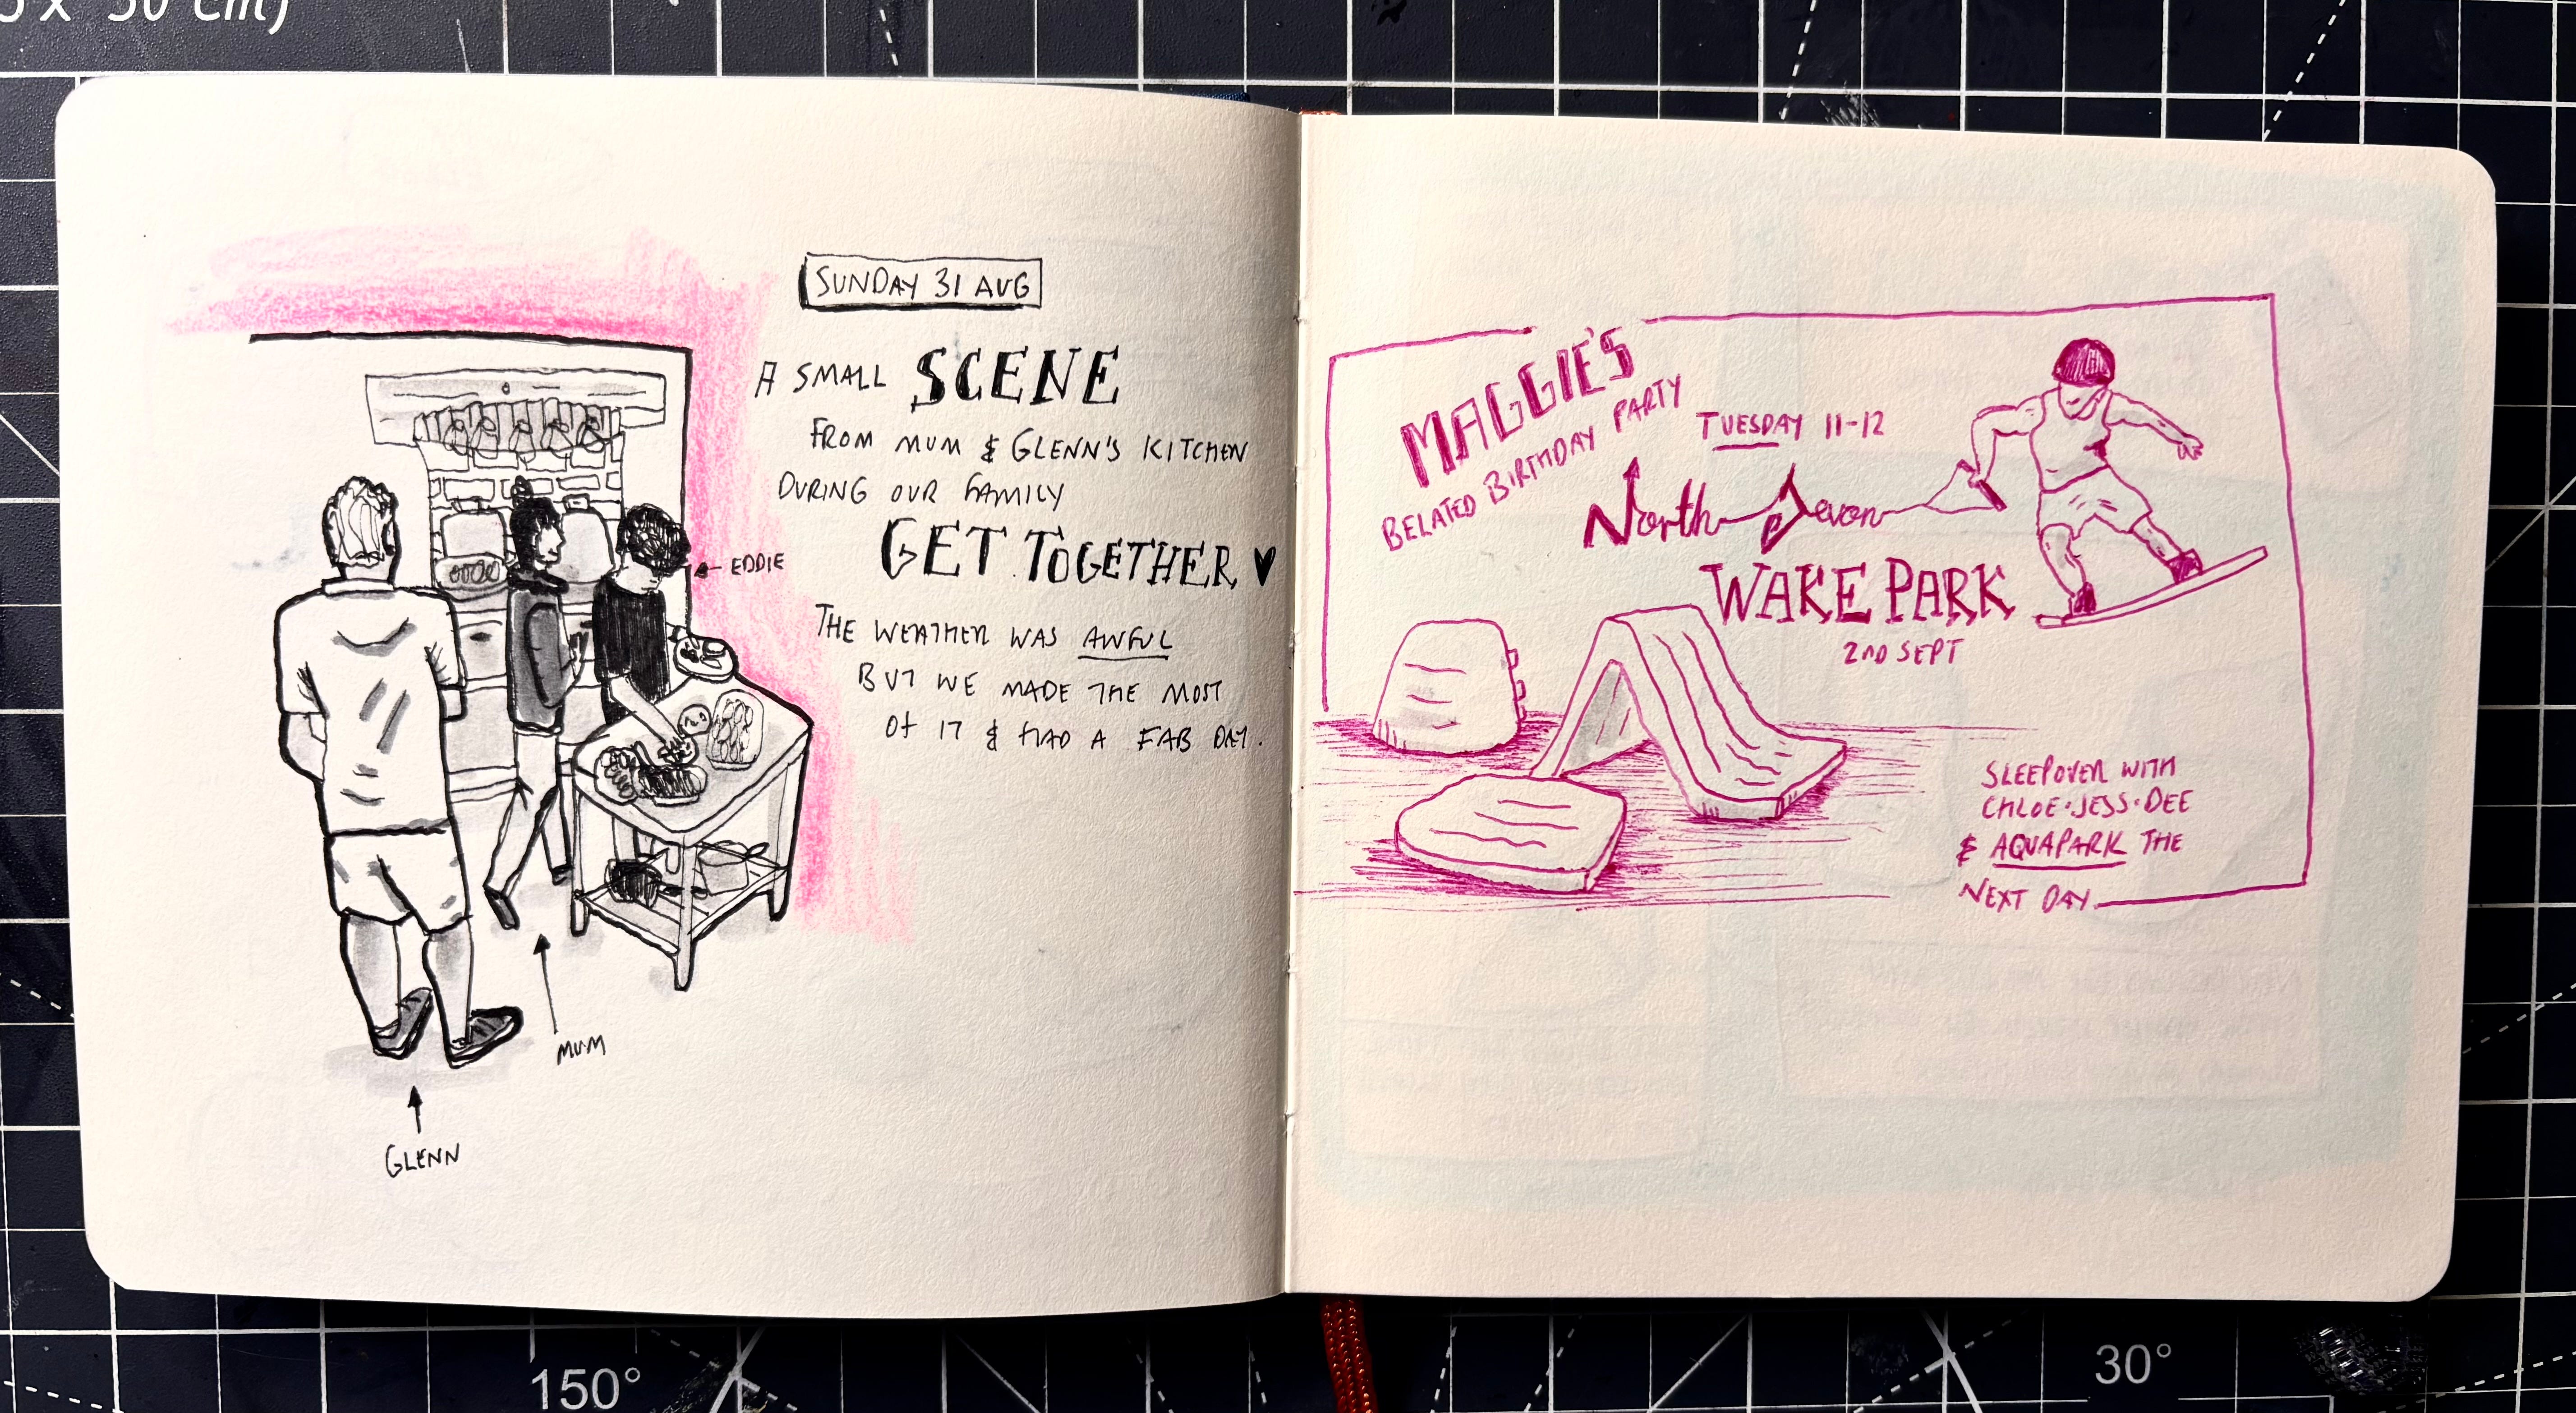 5 x 30 cm)
SUNDAY 31 AUG
A SMALL SCENE
FROM MUM & GLENN'S KITCHEN
DURING OUR FAMILY
GET TOGETHER ♥
EDDIE
THE WEATHER WAS AWFUL
BUT WE MADE THE MOST
OF IT & HAD A FAB DAY.
MUM
GLENN
MAGGIE'S
BELATED BIRTHDAY PARTY
TUESDAY 11-12
North Devon
WAKE PARK
2ND SEPT
SLEEPOVER WITH
CHLOE·JESS·DEE
& AQUAPARK THE
NEXT DAY
150°
30°